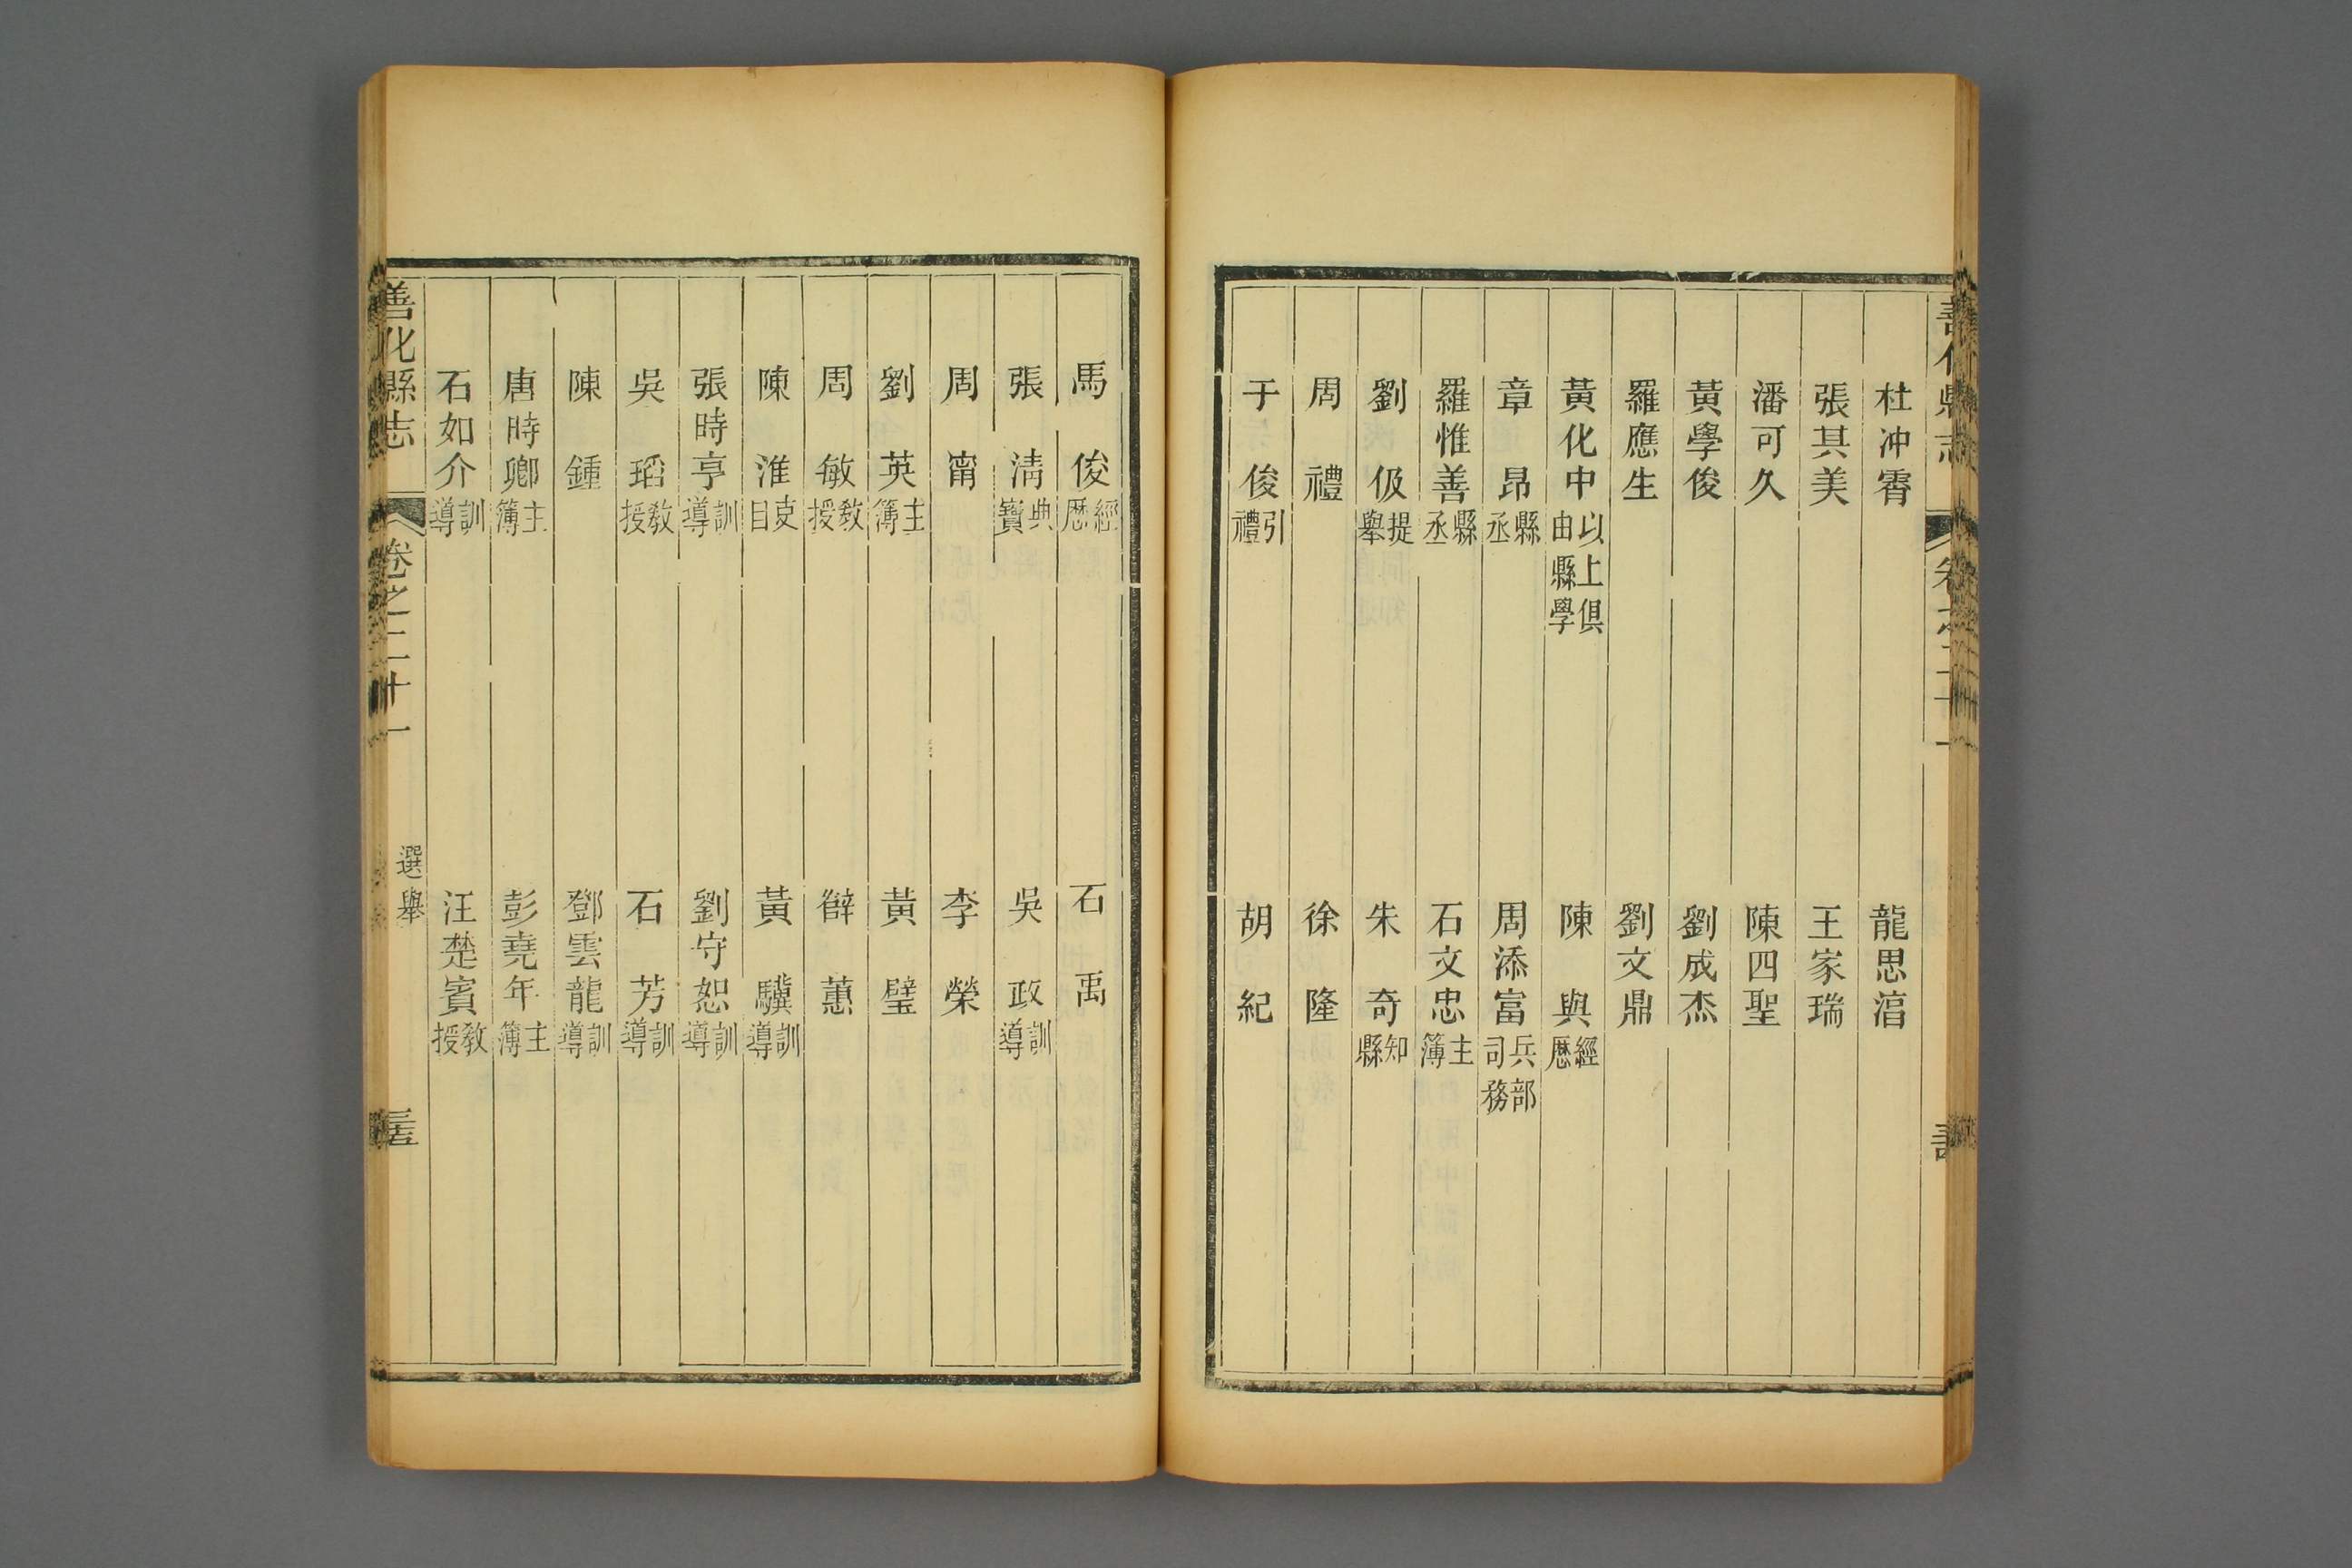 杜冲霄 龍思涓
張其美 王家瑞
潘可久 陳四聖
黃學俊 劉成杰
羅應生 劉文鼎
黃化中以上俱由縣學 陳與經歷
章昂縣丞 周添富兵部司務
羅惟善縣丞 石文忠主簿
劉伋提舉 朱奇知縣
周禮 徐隆
于俊引禮 胡紀
馬俊經歷 石禹
張淸典寶 吳政訓導
周甯 李榮
劉英主簿 黃璧
周敏教授 薛蕙
陳淮吏目 黃驥訓導
張時亨訓導 劉守恕訓導
吳瑫教授 石芳訓導
陳鍾 鄧雲龍訓導
唐時卿主簿 彭堯年主簿
石如介訓導 汪楚賓教授
善化縣志 卷之二十一 選舉